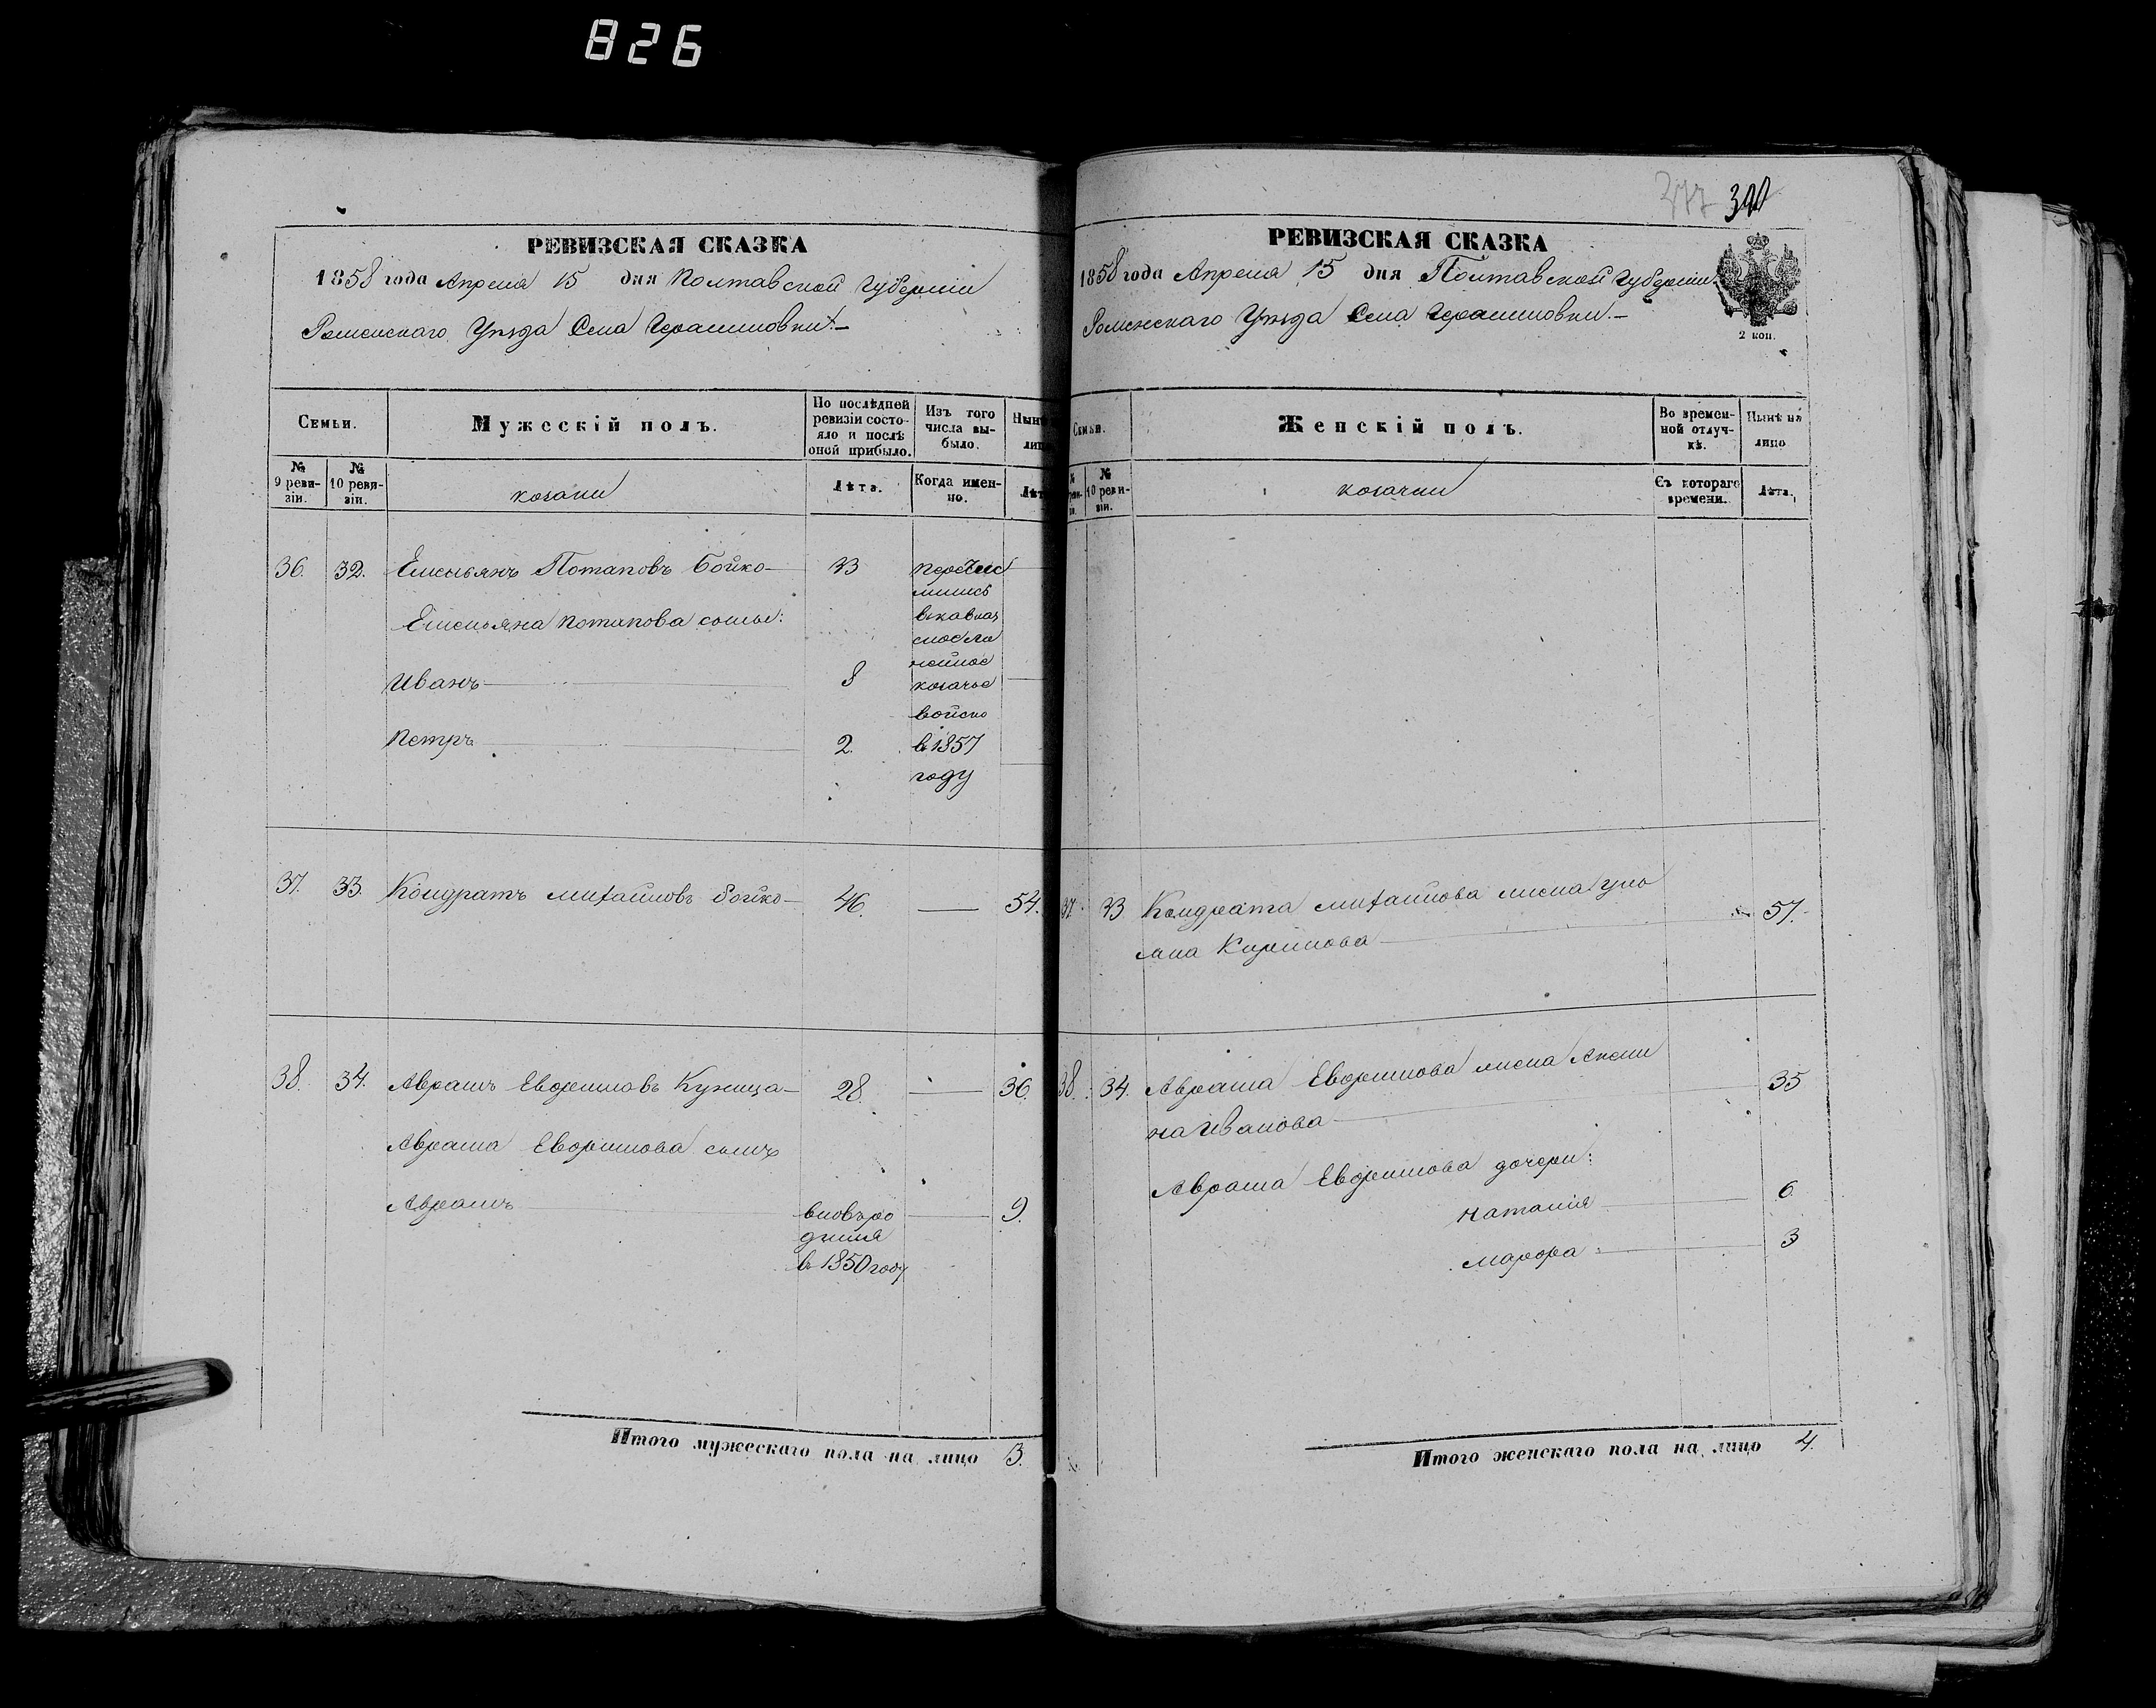 826
РЕВИЗСКАЯ СКАЗКА
1858 года Апреля 15 дня Полтавской Губернии
Роменскаго Уезда Села Герасимовки.—
Семьи.
Мужескій полъ.
По послѣдней ревизіи состояло и послѣ оной прибыло.
Изъ того числа выбыло.
№ 9 ревизіи.
№ 10 ревизіи.
козаки
Лѣта.
Когда именно.
36. 32. Емельянъ Потаповъ Бойко 33
Емельяна Потапова сыны:
Иванъ 8
Петръ 2.
перечис
лились
въ кавказ
ское ли
нейное
козачье
войско
въ 1857
году
37. 33. Кондратъ Михайловъ Бойко 46. — 54.
38. 34. Абрамъ Евфремовъ Куница 28. — 36.
Абрама Евфремова сынъ
Абрамъ вновь ро — 9.
дился
въ 1850 году
Итого мужескаго пола на лицо 3.
РЕВИЗСКАЯ СКАЗКА
1858 года Апреля 15 дня Полтавской Губернии
Роменскаго Уезда Села Герасимовки.—
2 коп.
Семьи.
Женскій полъ.
Во временной отлучкѣ.
Нынѣ на лицо
№ 10 ревизіи.
козачки
Съ котораго времени.
Лѣта.
37. 33 Кондрата Михайлова жена Улья 57.
на Кирилова
38. 34. Абрама Евфремова жена Акели 35
на Иванова
Абрама Евфремова дочери:
Наталія 6
Марфа 3
Итого женскаго пола на лицо 4.